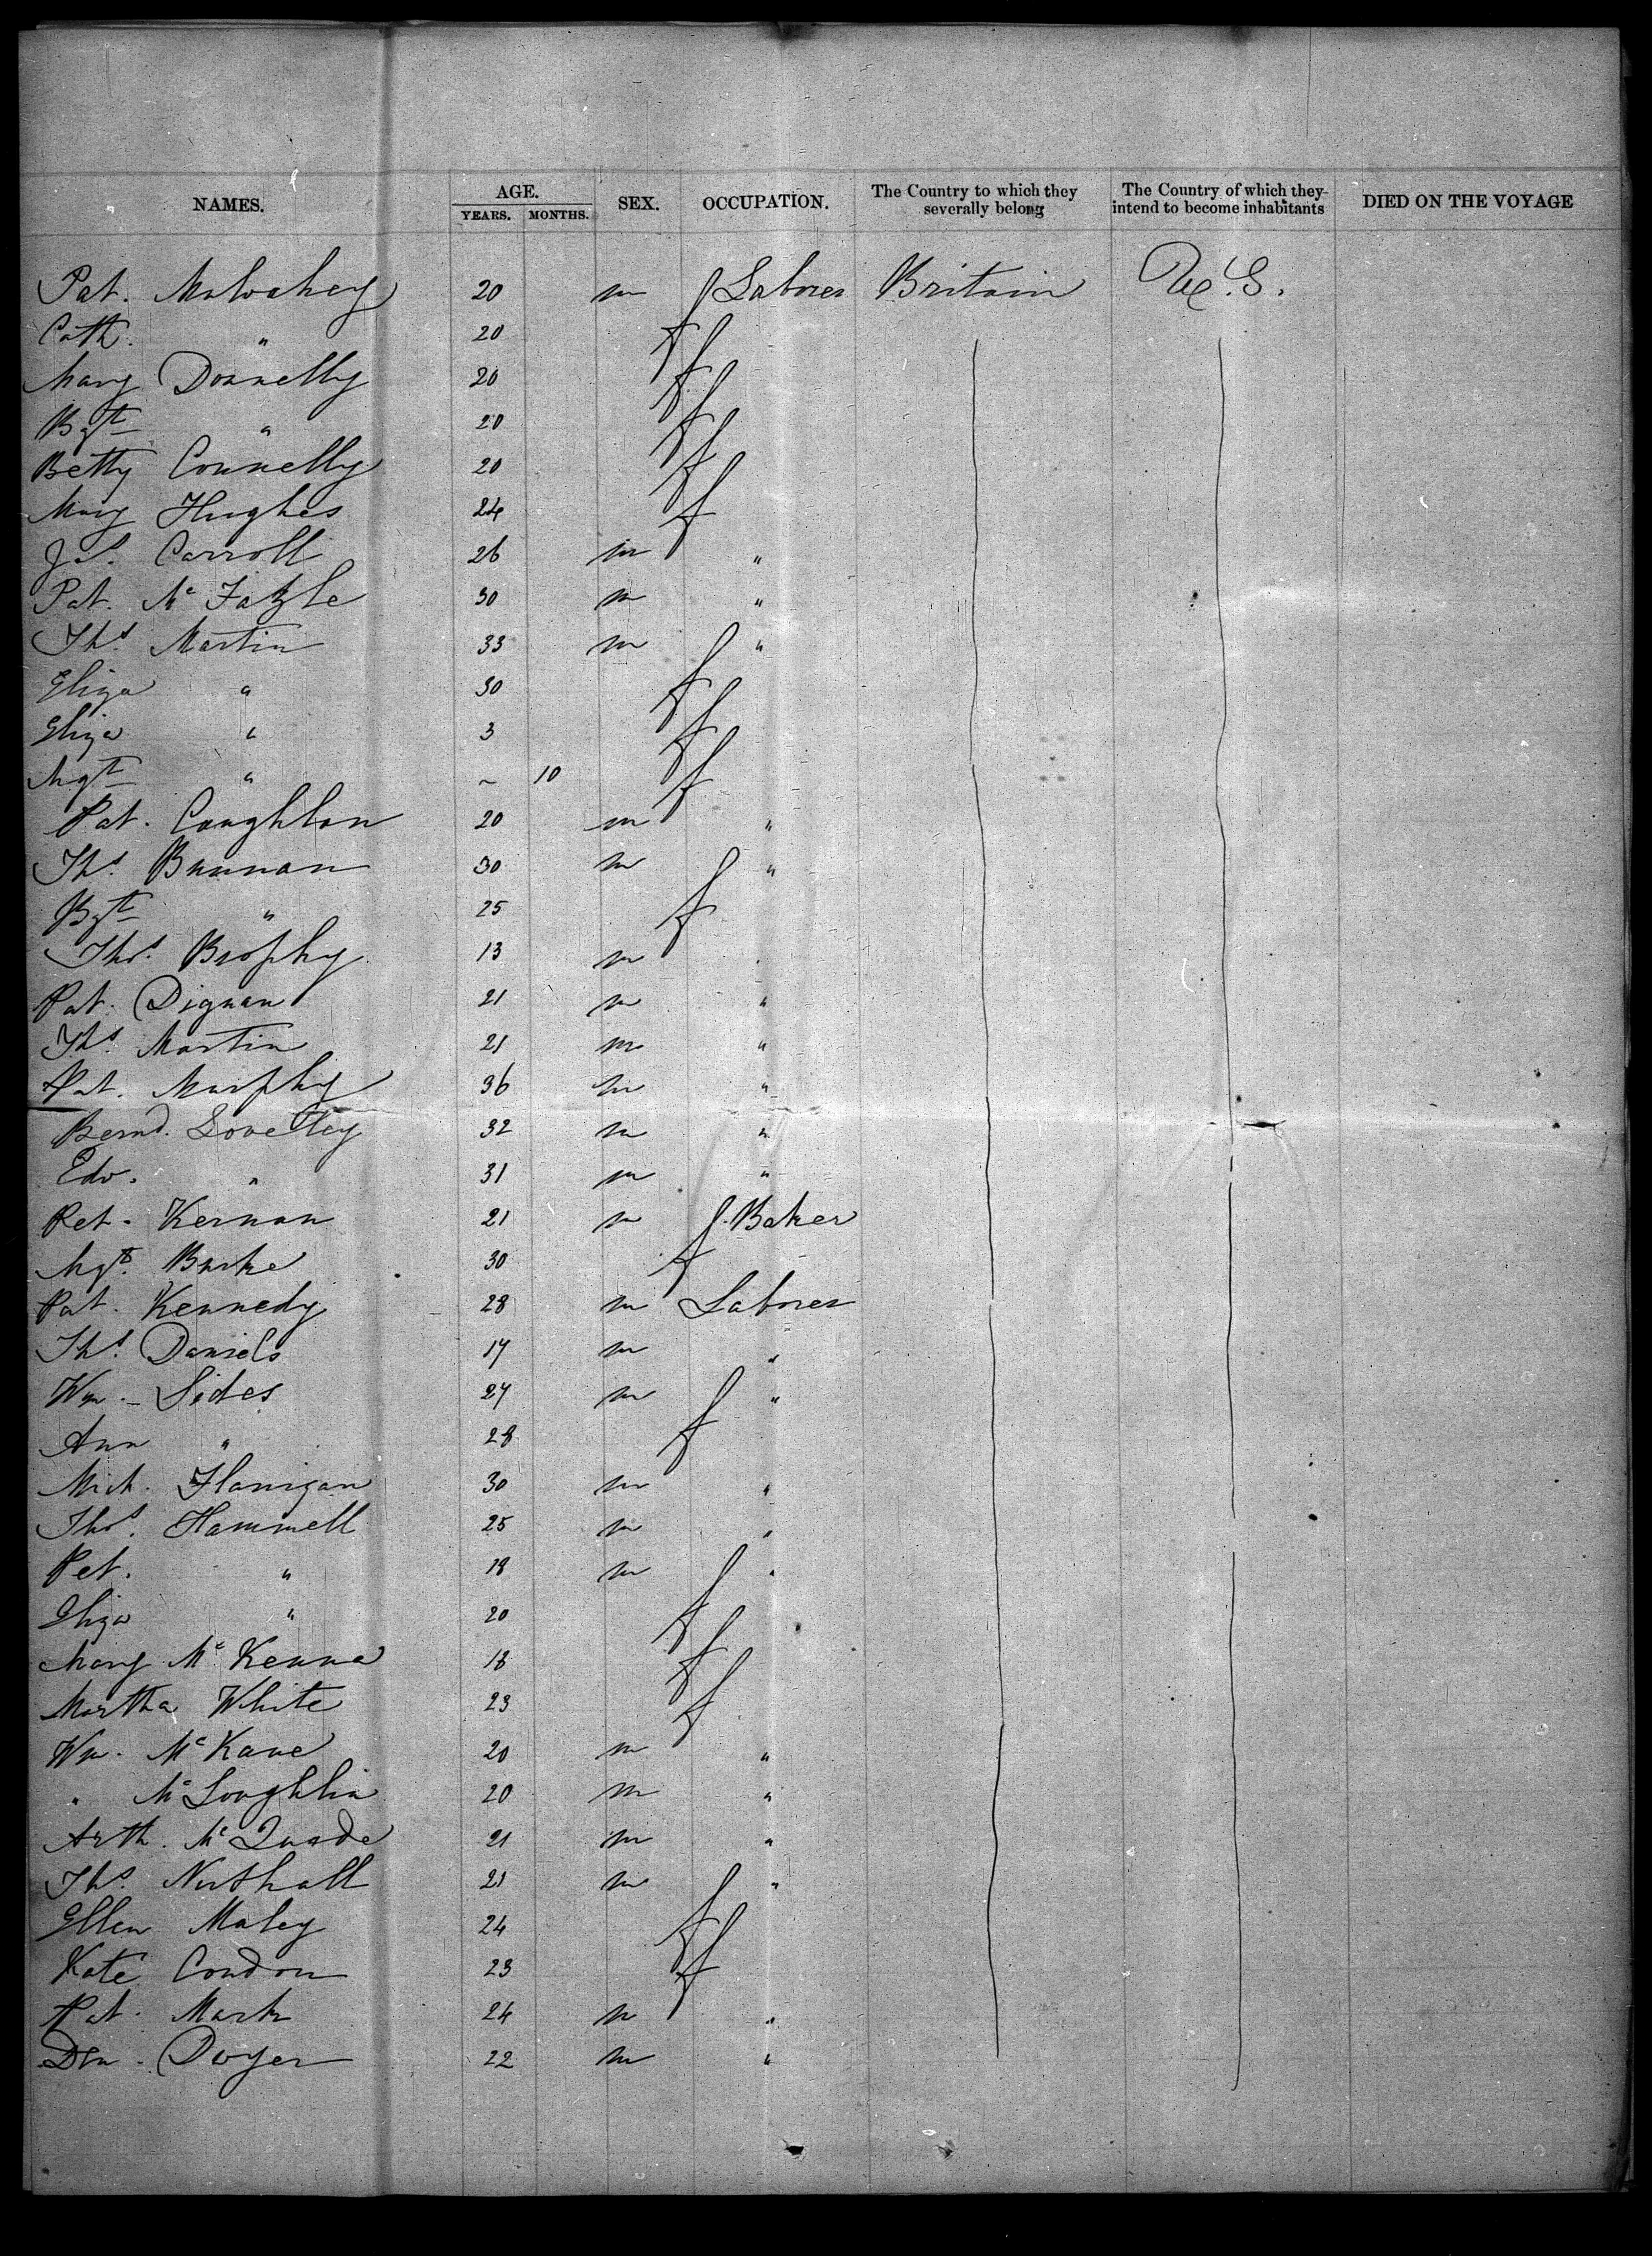 NAMES. AGE. YEARS. MONTHS. SEX. OCCUPATION. The Country to which they severally belong The Country of which they intend to become inhabitants DIED ON THE VOYAGE
Pat. Mulvahey 20 m Laborer Britain U.S.
Cath. " 20 f
Mary Donnelly 20 f
Bgt " 20 f
Betty Connelly 20 f
Mary Hughes 24 f
Js. Carroll 26 m "
Pat. Mc 30 m "
Ths. Martin 33 m "
Eliza " 30 f
Eliza " 3 f
Mgt " ~ 10 f
Pat. Coughlan 20 m "
Ths. Brennan 30 m "
Bgt " 25 f
Thos. Brophy 13 m "
Pat. Dignan 21 m "
Ths. Martin 21 m "
Pat. Murphy 36 m "
Bernd. 32 m "
Edw. " 31 m "
Pet. Kernan 21 m Baker
Mgt. Burke 30 f
Pat. Kennedy 28 m Laborer
Ths. Daniels 17 m "
Wm. Sides 27 m "
Ann " 28 f
Mich. Flanigan 30 m "
Thos. Hammell 25 m "
Pet. " 18 m "
Eliza " 20 f
Mary McKenna 18 f
Martha White 23 f
Wm. McKane 20 m "
" McLoughlin 20 m "
Arth. McQuade 21 m "
Ths. Nuthall 21 m "
Ellen Maley 24 f
Kate Condon 23 f
Pat. Mark 24 m "
Den. Dwyer 22 m "